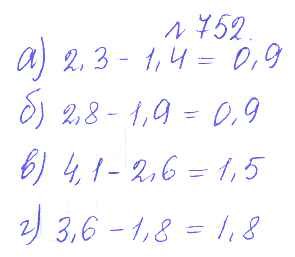 № 752.
а) 2,3 - 1,4 = 0,9
б) 2,8 - 1,9 = 0,9
в) 4,1 - 2,6 = 1,5
г) 3,6 - 1,8 = 1,8